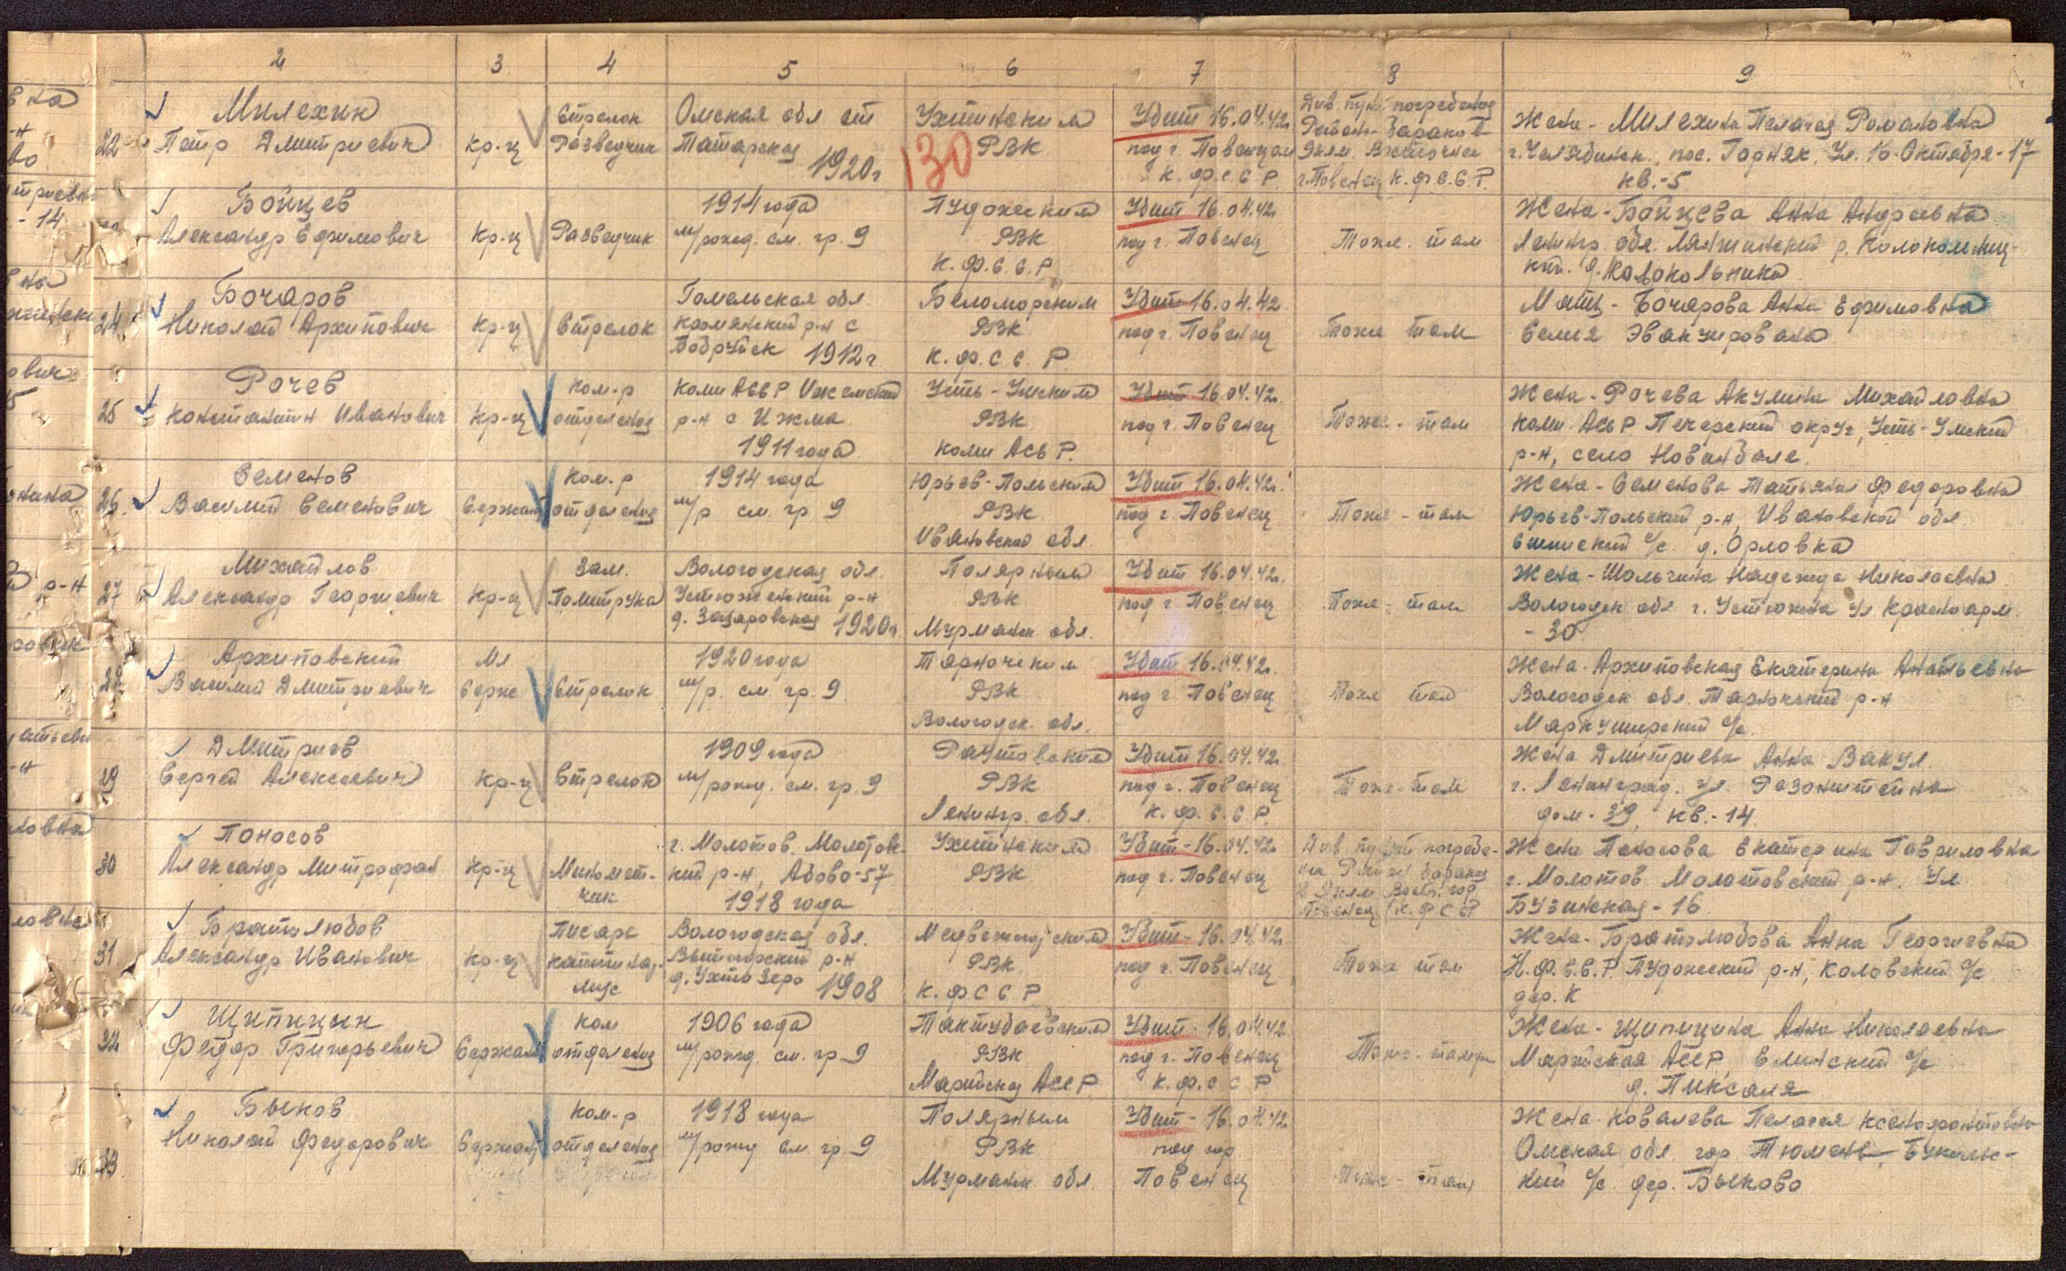 2 3 4 5 6 7 8 9
22
Милехин
Петр Дмитриевич
Кр-ц
Стрелок
Разведчик
Омская обл ст
Татарская
1920г
Ухтинским
РВК
130
Убит 16.04.42г
под г. Повенцом
К.Ф.С.С.Р.
Див. пункт погребения
г. Повенец К.Ф.С.С.Р.
Жена - Милехина Пелагея Романовна
г. Челябинск, пос. Горняк, Ул. 16-Октября-17
кв.-5
Бойцев
Александр Ефимович
Кр-ц
Разведчик
1914 года
м/рожд. см. гр. 9
Пудожским
РВК
К.Ф.С.С.Р.
Убит 16.04.42г
под г. Повенец
Тоже-там
Жена - Бойцева Анна Андреевна
Ленингр. обл.
24
Бочаров
Николай Архипович
Кр-ц
Стрелок
Гомельская обл.
Кормянский р-н с
Бобруйск 1912г
Беломорским
РВК
К.Ф.С.С.Р.
Убит 16.04.42
под г. Повенец
Тоже там
Мать - Бочарова Анна Ефимовна
Семия Эвакуирована
25
Рочев
Константин Иванович
Кр-ц
Ком-р
отделения
Коми АССР Ижемский
р-н с Ижма
1911 года
Усть-Усинским
РВК
Коми АССР.
Убит 16.04.42г.
под г. Повенец
Тоже-там
Жена - Рочева Акулина Михайловна
Коми АССР Печерский округ, Усть-Усинский
р-н, село
26
Семенов
Василий Семенович
Сержант
Ком-р
отделения
1914 года
м/р см. гр 9
Юрьев-Польским
РВК
Ивановской обл.
Убит 16.04.42г.
под г. Повенец
Тоже-там
Жена - Семенова Татьяна Федоровна
Юрьев-Польский р-н, Ивановской обл
с/с д. Орловка
27
Михайлов
Александр Георгиевич
Кр-ц
Зам.
Политрука
Вологодская обл.
Устюженский р-н
д. Захаровская 1920г
Полярным
РВК
Мурманск обл.
Убит 16.04.42г.
под г. Повенец
Тоже-там
Жена - Шольгина Надежда Николаевна
Вологодск обл г. Устюжна Ул Красноарм
- 30
Архиповский
Василий Дмитриевич
Мл
Серж
Стрелок
1920 года
м/р. см. гр. 9
Тарногским
РВК
Вологодск. обл.
Убит 16.04.42г.
под г. Повенец
Тоже там
Жена - Архиповская Екатерина
Вологодск обл. Тарногский р-н
Маркушевский с/с
29
Дмитриев
Сергей Алексеевич
Кр-ц
Стрелок
1909 года
м/рожд. см. гр. 9
РВК
Ленингр. обл.
Убит 16.04.42г
под г. Повенец
К.Ф.С.С.Р.
Тоже-там
Жена Дмитриева Анна Вакул.
г. Ленинград. Ул.
дом-39, кв.-14
30
Поносов
Александр Митрофан
Кр-ц
Миномет-
чик
г. Молотов, Молотовс-
кий р-н,
1918 года
Ухтинским
РВК
Убит-16.04.42г
под г. Повенец
Див. пункт погребе-
Жена Поносова Екатерина Гавриловна
г. Молотов Молотовский р-н. Ул
- 16
31
Братолюбов
Александр Иванович
Кр-ц
Писарь
Вологодская обл.
Вытегорский р-н
д. Ухтозеро 1908
Медвежегорским
РВК
К.Ф.С.С.Р
Убит-16.04.42г
под г. Повенец
Тоже там
Жена - Братолюбова Анна Георгиевна
К.Ф.С.С.Р. Пудожский р-н, Коловский с/с
дер. К
32
Щипицын
Федор Григорьевич
Сержант
Ком
отделения
1906 года
м/рожд. см. гр. 9
РВК
Марийская АССР
Убит-16.04.42
под г. Повенец
К.Ф.С.С.Р
Жена - Щипицина Анна Николаевна
Марийская АССР,
33
Быков
Николай Федорович
Сержант
Ком-р
отделения
1918 года
м/рожд см. гр 9
Полярным
РВК
Мурманск. обл.
Убит-16.04.42
под гор
Повенец
Тоже-там
Жена - Ковалева Пелагея Ксенофонтовна
Омская обл. гор. Тюмень,
кий с/с дер. Быково